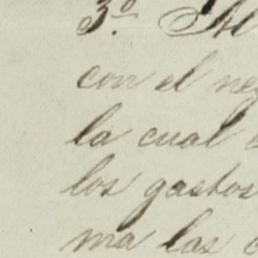 3.º Al
con el neg
la cual
los gastos
ma las